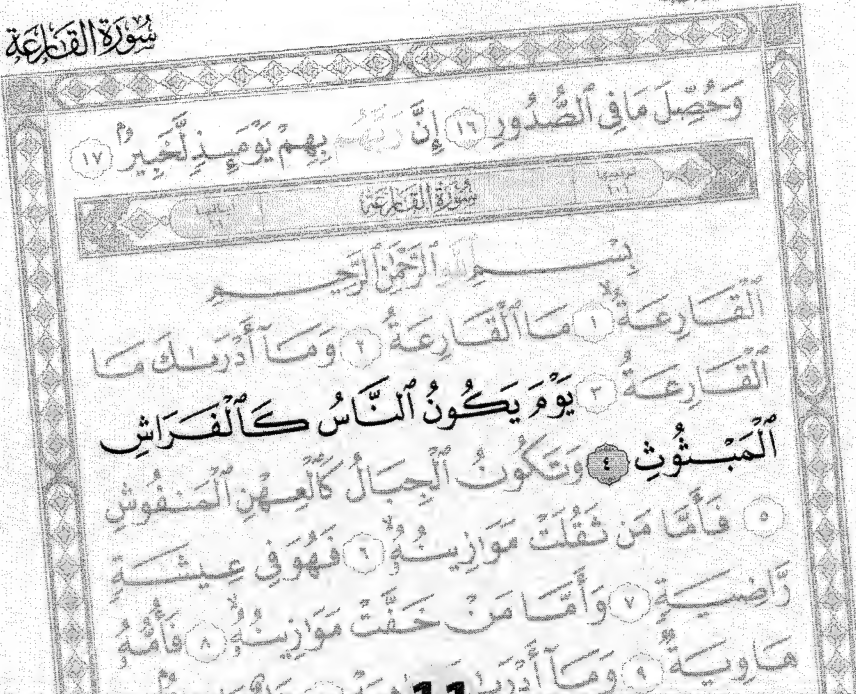 سُورَةُ القَارِعَةِ
وَحُصِّلَ مَا فِى ٱلصُّدُورِ ١٠ إِنَّ رَبَّهُم بِهِمْ يَوْمَئِذٍ لَّخَبِيرٌۢ ١١
سُورَةُ القَارِعَةِ
بِسْمِ ٱللَّهِ ٱلرَّحْمَٰنِ ٱلرَّحِيمِ
ٱلْقَارِعَةُ ١ مَا ٱلْقَارِعَةُ ٢ وَمَآ أَدْرَىٰكَ مَا
ٱلْقَارِعَةُ ٣ يَوْمَ يَكُونُ ٱلنَّاسُ كَٱلْفَرَاشِ
ٱلْمَبْثُوثِ ٤ وَتَكُونُ ٱلْجِبَالُ كَٱلْعِهْنِ ٱلْمَنفُوشِ
٥ فَأَمَّا مَن ثَقُلَتْ مَوَٰزِينُهُۥ ٦ فَهُوَ فِى عِيشَةٍ
رَّاضِيَةٍ ٧ وَأَمَّا مَنْ خَفَّتْ مَوَٰزِينُهُۥ ٨ فَأُمُّهُۥ
هَاوِيَةٌ ٩ وَمَآ